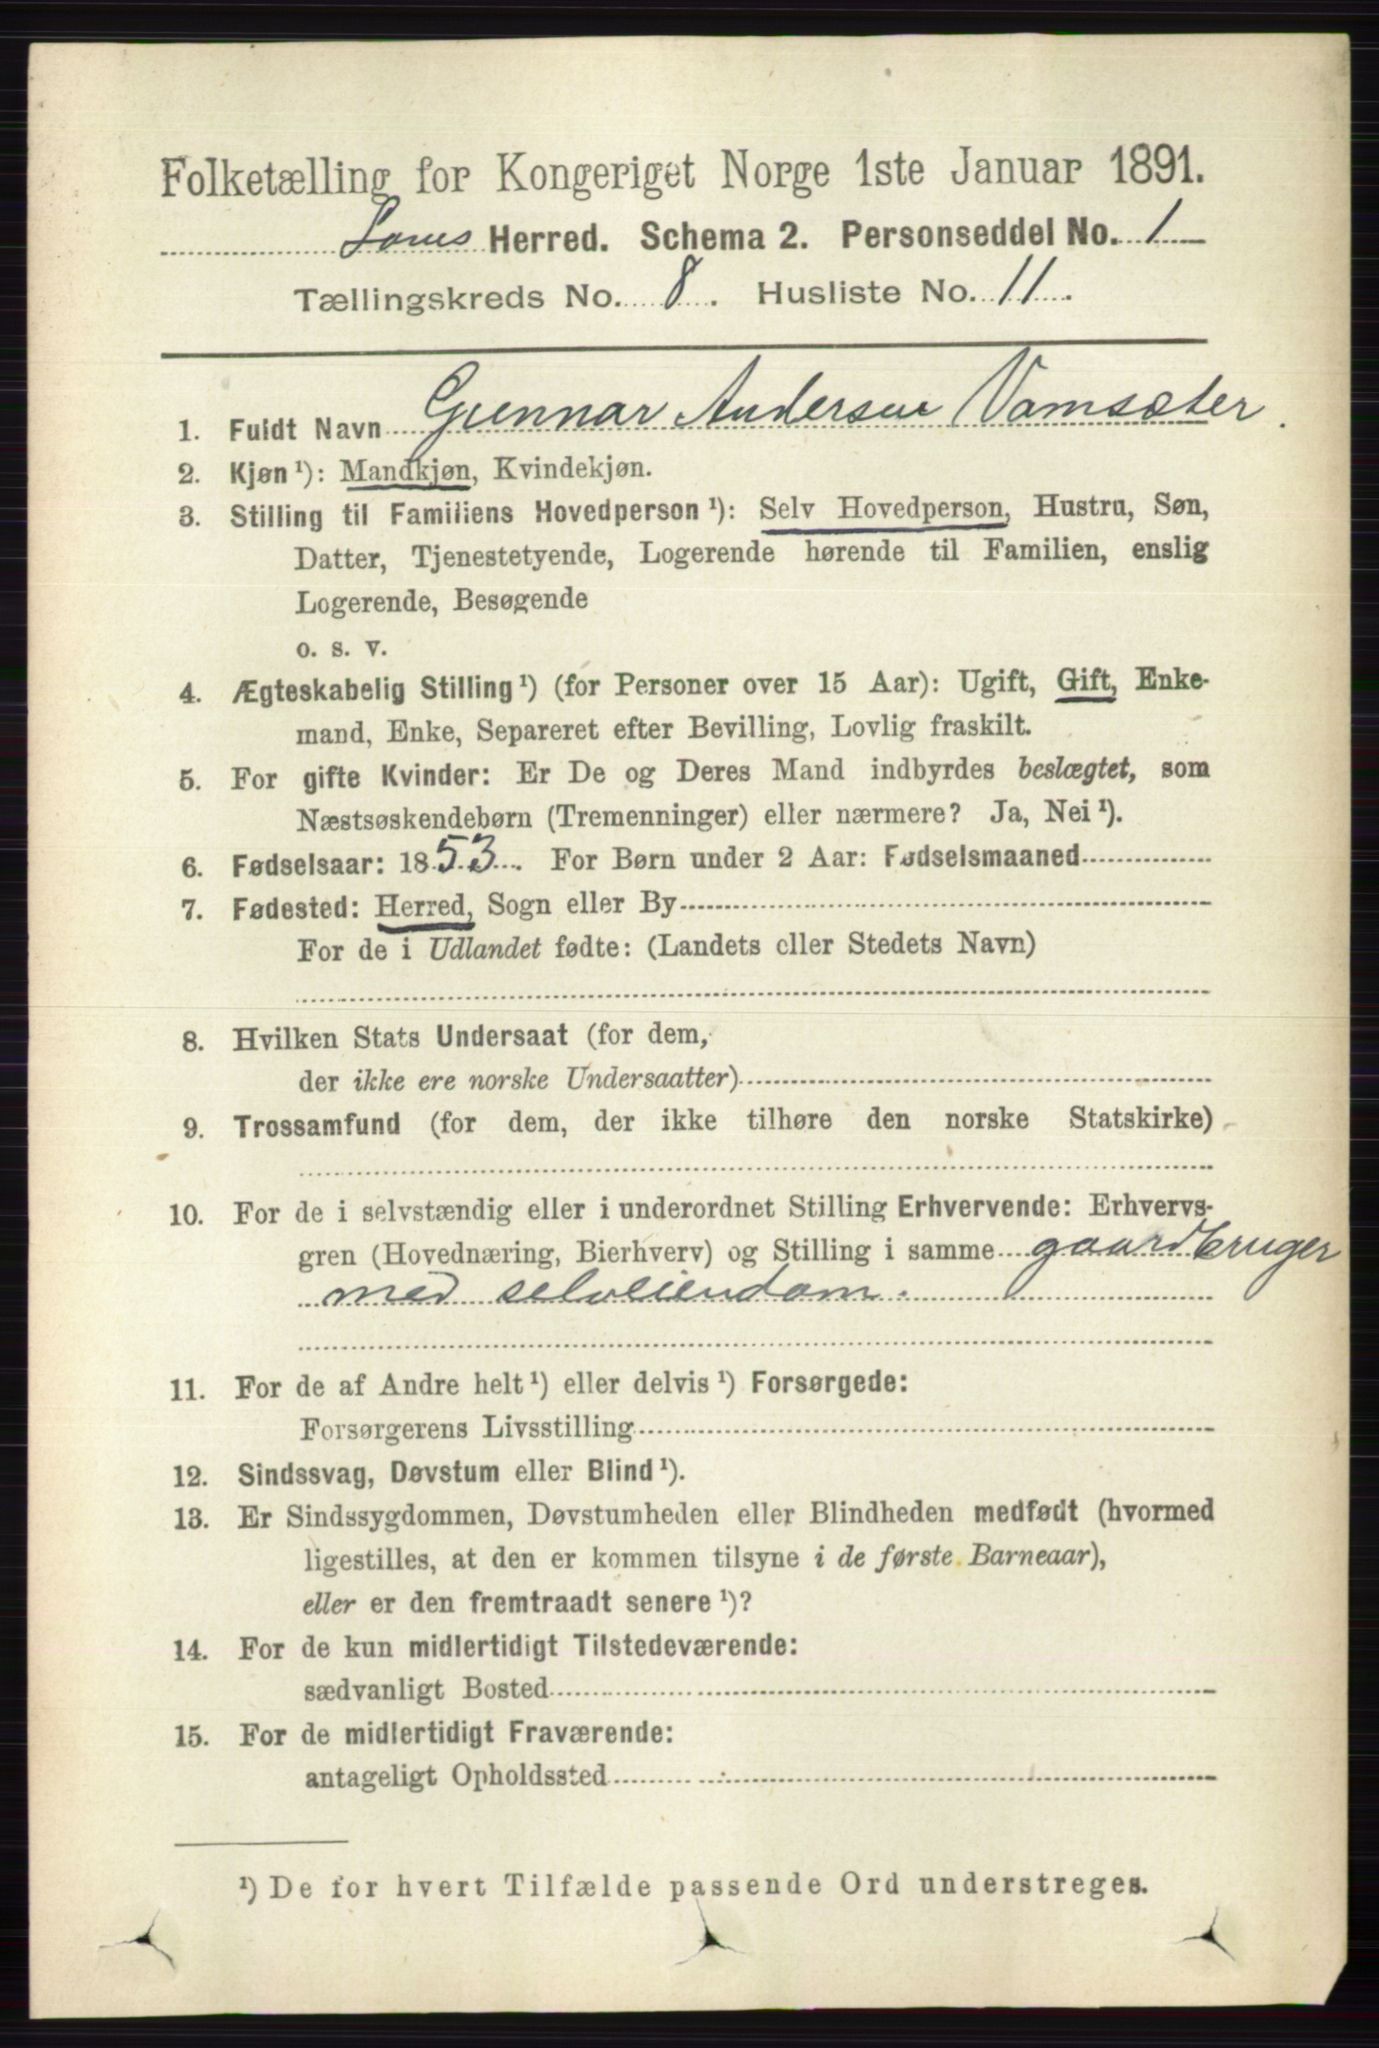 Folketælling for Kongeriget Norge 1ste Januar 1891.
Loms Herred. Schema 2. Personseddel No. 1
Tællingskreds No. 8. Husliste No. 11.
1. Fuldt Navn Gunnar Andersen Vamsæter.
2. Kjøn ¹): Mandkjøn, Kvindekjøn.
3. Stilling til Familiens Hovedperson ¹): Selv Hovedperson, Hustru, Søn,
Datter, Tjenestetyende, Logerende hørende til Familien, enslig
Logerende, Besøgende
o. s. v.
4. Ægteskabelig Stilling ¹) (for Personer over 15 Aar): Ugift, Gift, Enke-
mand, Enke, Separeret efter Bevilling, Lovlig fraskilt.
5. For gifte Kvinder: Er De og Deres Mand indbyrdes beslægtet, som
Næstsøskendebørn (Tremenninger) eller nærmere? Ja, Nei ¹).
6. Fødselsaar: 1853. For Børn under 2 Aar: Fødselsmaaned
7. Fødested: Herred, Sogn eller By
For de i Udlandet fødte: (Landets eller Stedets Navn)
8. Hvilken Stats Undersaat (for dem,
der ikke ere norske Undersaatter)
9. Trossamfund (for dem, der ikke tilhøre den norske Statskirke)
10. For de i selvstændig eller i underordnet Stilling Erhvervende: Erhvervs-
gren (Hovednæring, Bierhverv) og Stilling i samme gaardbruger
med selveiendom.
11. For de af Andre helt ¹) eller delvis ¹) Forsørgede:
Forsørgerens Livsstilling
12. Sindssvag, Døvstum eller Blind ¹).
13. Er Sindssygdommen, Døvstumheden eller Blindheden medfødt (hvormed
ligestilles, at den er kommen tilsyne i de første Barneaar),
eller er den fremtraadt senere ¹)?
14. For de kun midlertidigt Tilstedeværende:
sædvanligt Bosted
15. For de midlertidigt Fraværende:
antageligt Opholdssted
¹) De for hvert Tilfælde passende Ord understreges.